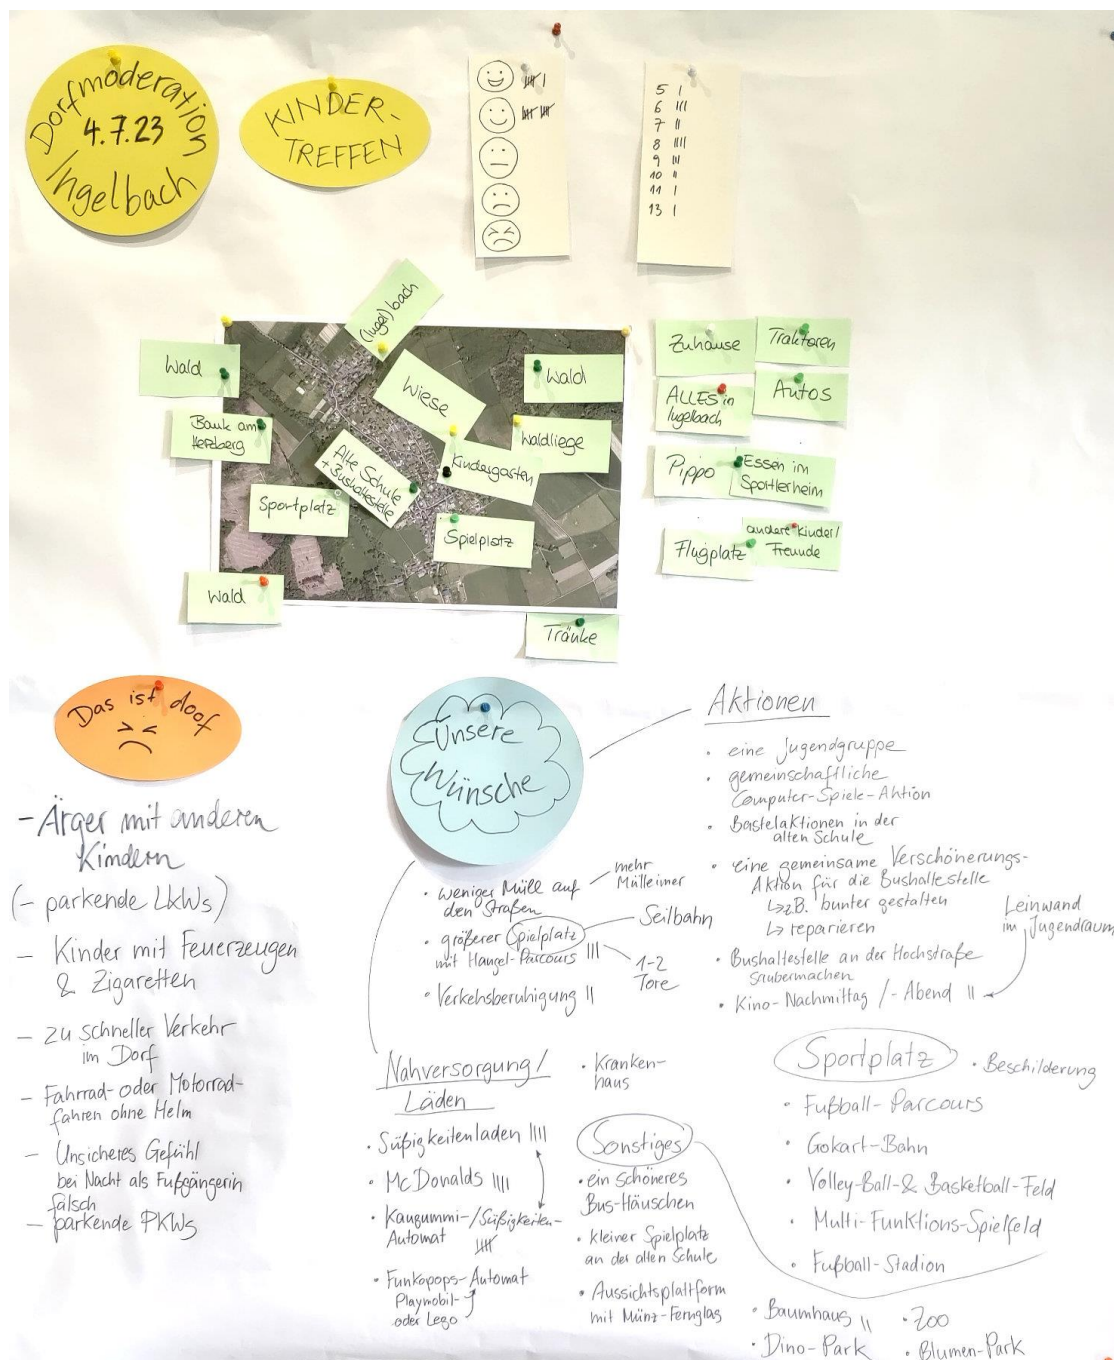 Dorfmoderation
4.7.23
Ingelbach
KINDER-
TREFFEN
5 |
6 |||
7 ||
8 ||||
9 |||
10 ||
11 |
13 |
(Ingel)bach
Wald
Wiese
Wald
Bank am
Herzberg
Waldliege
Alte Schule
+ Bushaltestelle
Kindergarten
Sportplatz
Spielplatz
Wald
Tränke
Zuhause
Traktoren
ALLES in
Ingelbach
Autos
Pippo
Essen im
Sportlerheim
Flugplatz
andere Kinder/
Freunde
Das ist doof
- Ärger mit anderen
Kindern
(- parkende LKWs)
- Kinder mit Feuerzeugen
& Zigaretten
- zu schneller Verkehr
im Dorf
- Fahrrad- oder Motorrad-
fahren ohne Helm
- Unsicheres Gefühl
bei Nacht als Fußgängerin
falsch
- parkende PKWs
Unsere
Wünsche
• weniger Müll auf
den Straßen
mehr
Mülleimer
• größerer Spielplatz
mit Hangel-Parcours |||
Seilbahn
1-2
Tore
• Verkehsberuhigung ||
Aktionen
• eine Jugendgruppe
• gemeinschaftliche
Computer-Spiele-Aktion
• Bastelaktionen in der
alten Schule
• eine gemeinsame Verschönerungs-
Aktion für die Bushaltestelle
↳ z.B. bunter gestalten
↳ reparieren
• Bushaltestelle an der Hochstraße
saubermachen
• Kino-Nachmittag /-Abend ||
Leinwand
im Jugendraum
Nahversorgung/
Läden
• Kranken-
haus
• Süßigkeitenladen ||||
• McDonalds ||||
• Kaugummi-/Süßigkeiten-
Automat
• Funkopops-Automat
Playmobil-
oder Lego
Sonstiges
• ein schöneres
Bus-Häuschen
• kleiner Spielplatz
an der alten Schule
• Aussichtsplattform
mit Münz-Fernglas
Sportplatz
• Beschilderung
• Fußball-Parcours
• Gokart-Bahn
• Volley-Ball-& Basketball-Feld
• Multi-Funktions-Spielfeld
• Fußball-Stadion
• Baumhaus ||
• Zoo
• Dino-Park
• Blumen-Park